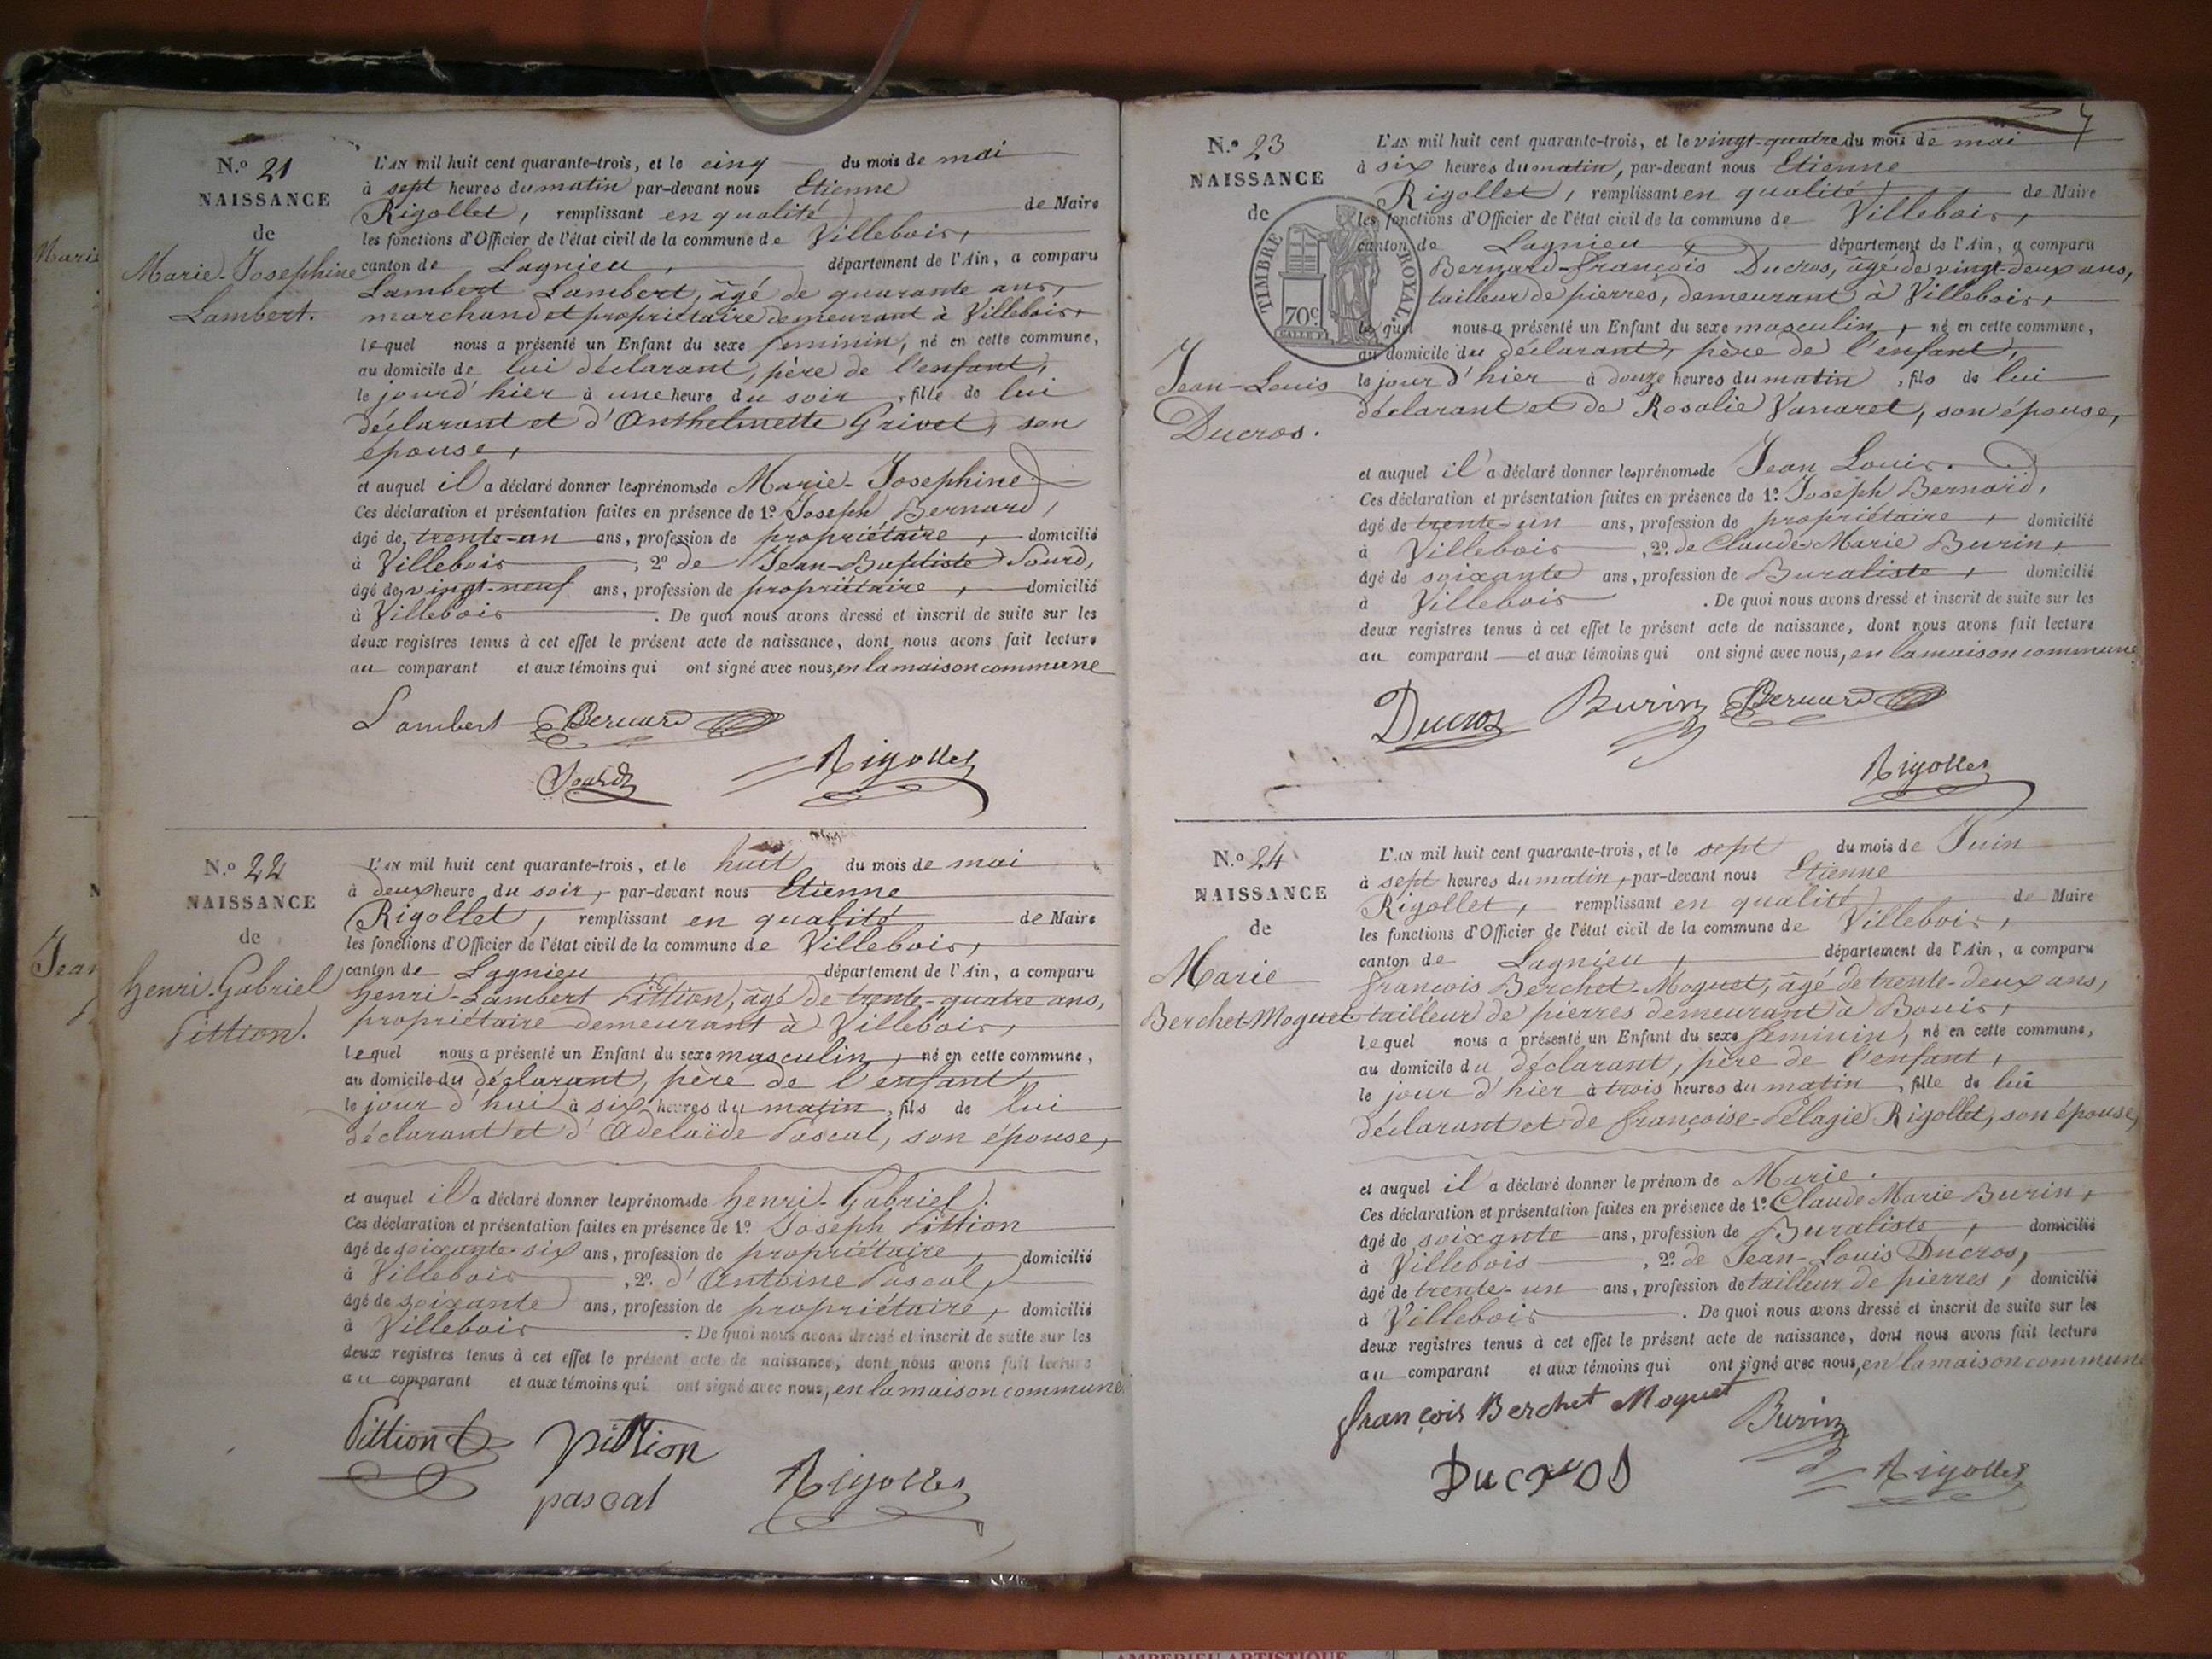 N.º 21
NAISSANCE
de
Marie-Josephine
Lambert.
L'AN mil huit cent quarante-trois, et le cinq du mois de mai
à sept heures du matin par-devant nous Etienne
Rigollet, remplissant en qualité de Maire
les fonctions d'Officier de l'état civil de la commune de Villebois,
canton de Lagnieu, département de l'Ain, a comparu
Lambert Lambert, âgé de quarante ans,
marchand et propriétaire demeurant à Villebois,
lequel nous a présenté un Enfant du sexe feminin, né en cette commune,
au domicile de lui déclarant, père de l'enfant,
le jour d'hier à une heure du soir, fille de lui
déclarant et d'Anthelmette Grivet, son
épouse,
et auquel il a déclaré donner les prénoms de Marie-Josephine
Ces déclaration et présentation faites en présence de 1º Joseph Bernard,
âgé de trente-un ans, profession de propriétaire, domicilié
à Villebois ; 2º de Jean-Baptiste Sourd,
âgé de vingt-neuf ans, profession de propriétaire, domicilié
à Villebois. De quoi nous avons dressé et inscrit de suite sur les
deux registres tenus à cet effet le présent acte de naissance, dont nous avons fait lecture
au comparant et aux témoins qui ont signé avec nous, en la maison commune
Lambert Bernard
Sourd Rigollet
N.º 22
NAISSANCE
de
Henri-Gabriel
Pittion.
L'AN mil huit cent quarante-trois, et le huit du mois de mai
à deux heure du soir, par-devant nous Etienne
Rigollet, remplissant en qualité de Maire
les fonctions d'Officier de l'état civil de la commune de Villebois,
canton de Lagnieu, département de l'Ain, a comparu
Henri-Lambert Pittion, âgé de trente-quatre ans,
propriétaire demeurant à Villebois,
lequel nous a présenté un Enfant du sexe masculin, né en cette commune,
au domicile du déclarant, père de l'enfant
le jour d'hui à six heures du matin, fils de lui
déclarant et d'Adelaïde Pascal, son épouse,
et auquel il a déclaré donner les prénoms de Henri-Gabriel.
Ces déclaration et présentation faites en présence de 1º Joseph Pittion
âgé de soixante-six ans, profession de propriétaire, domicilié
à Villebois, 2º. d'Antoine Pascal,
âgé de soixante ans, profession de propriétaire, domicilié
à Villebois. De quoi nous avons dressé et inscrit de suite sur les
deux registres tenus à cet effet le présent acte de naissance, dont nous avons fait lecture
au comparant et aux témoins qui ont signé avec nous, en la maison commune
Pittion pittion
pascal Rigollet
7
N.º 23
NAISSANCE
de
TIMBRE ROYAL
70c
Jean-Louis
Ducros.
L'AN mil huit cent quarante-trois, et le vingt-quatre du mois de mai
à six heures du matin, par-devant nous Etienne
Rigollet, remplissant en qualité de Maire
les fonctions d'Officier de l'état civil de la commune de Villebois,
canton de Lagnieu, département de l'Ain, a comparu
Bernard-François Ducros, âgé de vingt-deux ans,
tailleur de pierres, demeurant à Villebois,
lequel nous a présenté un Enfant du sexe masculin, né en cette commune,
au domicile du déclarant, père de l'enfant,
le jour d'hier à douze heures du matin, fils de lui
déclarant et de Rosalie Vanaret, son épouse,
et auquel il a déclaré donner les prénoms de Jean Louis.
Ces déclaration et présentation faites en présence de 1º Joseph Bernard,
âgé de trente-un ans, profession de propriétaire, domicilié
à Villebois, 2º. de Claude-Marie Burin,
âgé de soixante ans, profession de Buraliste, domicilié
à Villebois. De quoi nous avons dressé et inscrit de suite sur les
deux registres tenus à cet effet le présent acte de naissance, dont nous avons fait lecture
au comparant et aux témoins qui ont signé avec nous, en la maison commune
Ducros Burin Bernard
Rigollet
N.º 24
NAISSANCE
de
Marie
Berchet-Moguet
L'AN mil huit cent quarante-trois, et le sept du mois de Juin
à sept heures du matin, par-devant nous Etienne
Rigollet, remplissant en qualité de Maire
les fonctions d'Officier de l'état civil de la commune de Villebois,
canton de Lagnieu, département de l'Ain, a comparu
François Berchet-Moguet, âgé de trente-deux ans,
tailleur de pierres demeurant à Bouis,
lequel nous a présenté un Enfant du sexe feminin, né en cette commune,
au domicile du déclarant, père de l'enfant,
le jour d'hier à trois heures du matin, fille de lui
déclarant et de Françoise-Pélagie Rigollet, son épouse,
et auquel il a déclaré donner le prénom de Marie.
Ces déclaration et présentation faites en présence de 1º. Claude Marie Burin,
âgé de soixante ans, profession de Buraliste, domicilié
à Villebois, 2º. de Jean-Louis Ducros,
âgé de trente-un ans, profession de tailleur de pierres, domicilié
à Villebois. De quoi nous avons dressé et inscrit de suite sur les
deux registres tenus à cet effet le présent acte de naissance, dont nous avons fait lecture
au comparant et aux témoins qui ont signé avec nous, en la maison commune
françois Berchet Moguet Burin
Ducros Rigollet
AMBERIEU ARTISTIQUE